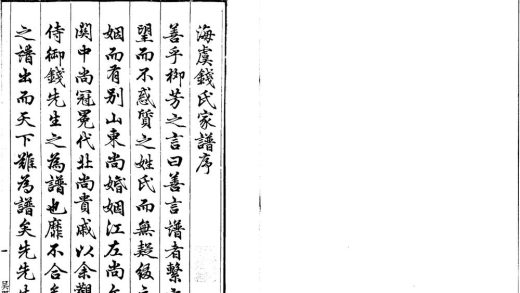 海虞錢氏家譜序
善乎柳芳之言曰善言譜者繫之
望而不惑質之姓氏而無疑綴之
姻而有别山東尚婚姻江左尚
關中尚冠冕代北尚貴戚以余觀
侍御錢先生之為譜也靡不合
之譜出而天下難為譜矣先先生
一